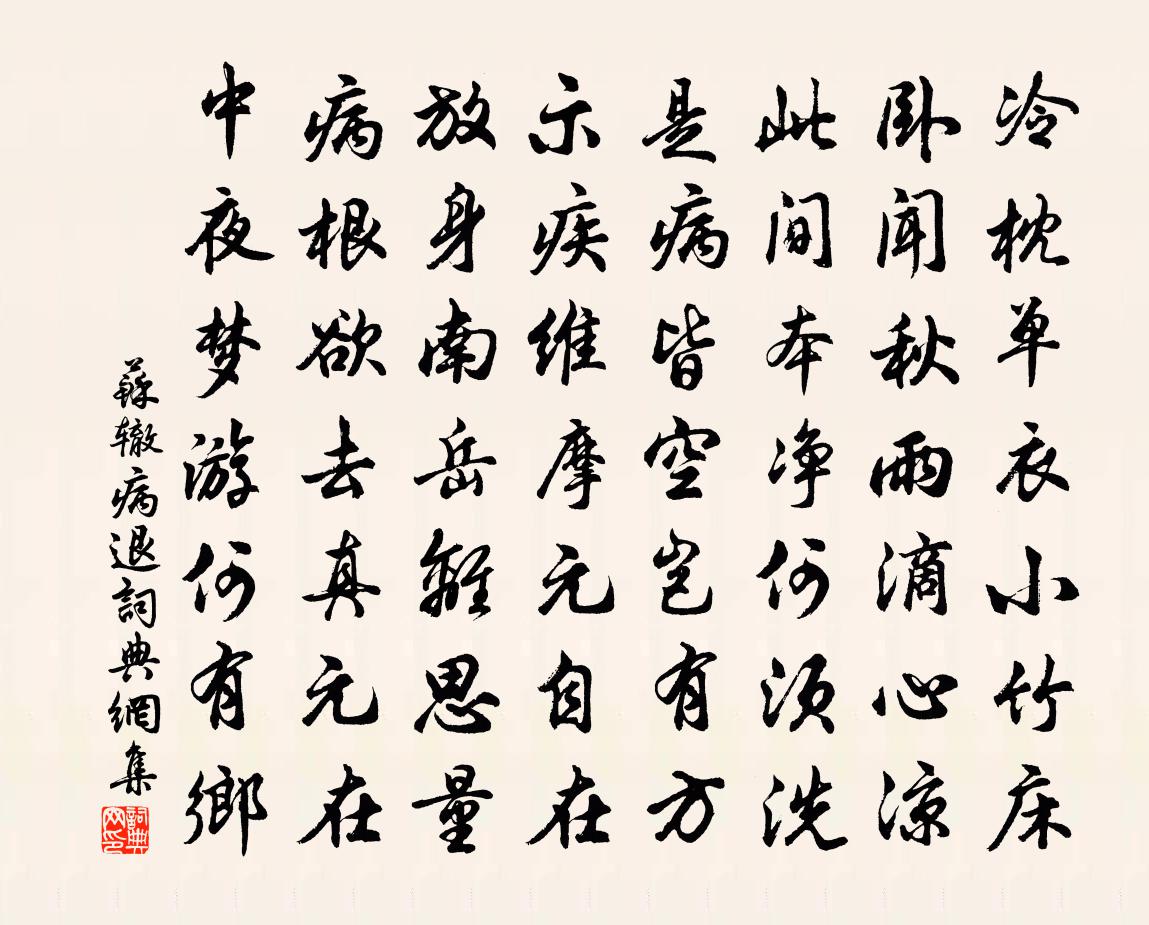 冷枕单衣小竹床
卧闻秋雨滴心凉
此间本净何须洗
是病皆空岂有方
示疾维摩元自在
放身南岳离思量
病根欲去真元在
中夜梦游何有乡
苏辙病退词典网集
词典网印